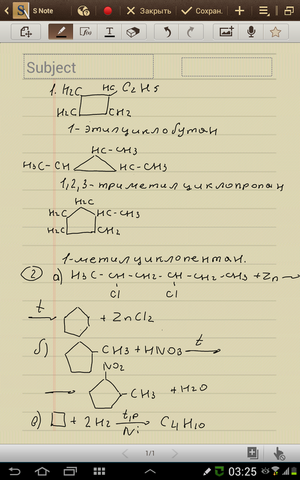 S Note
Закрыть
Сохран.
Subject
1. H2C HC C2H5
H2C CH2
1- этилциклобутан
HC-CH3
H3C-CH HC-CH3
1,2,3-триметилциклопропан
H2C
H2C HC-CH3
H2C CH2
1-метилциклопентан.
2 а) H3C-CH-CH2-CH-CH2-CH3 + Zn
Cl Cl
t + ZnCl2
б) CH3 + HNO3 t
NO2
CH3 + H2O
в) + 2H2 t,p C4H10
Ni
1/1
03:25